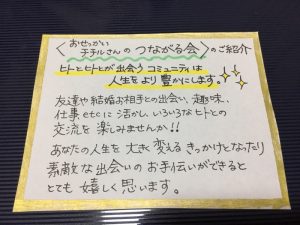 おせっかい
〈チチルさんのつながる会〉のご紹介
ヒトとヒトが出会うコミュニティは
人生をより豊かにします。
友達や結婚お相手との出会い、趣味、
仕事etcに活かし、いろいろなヒトとの
交流を楽しみませんか!!
あなたの人生を大きく変えるきっかけとなったり
素敵な出会いのお手伝いができると
とても嬉しく思います。